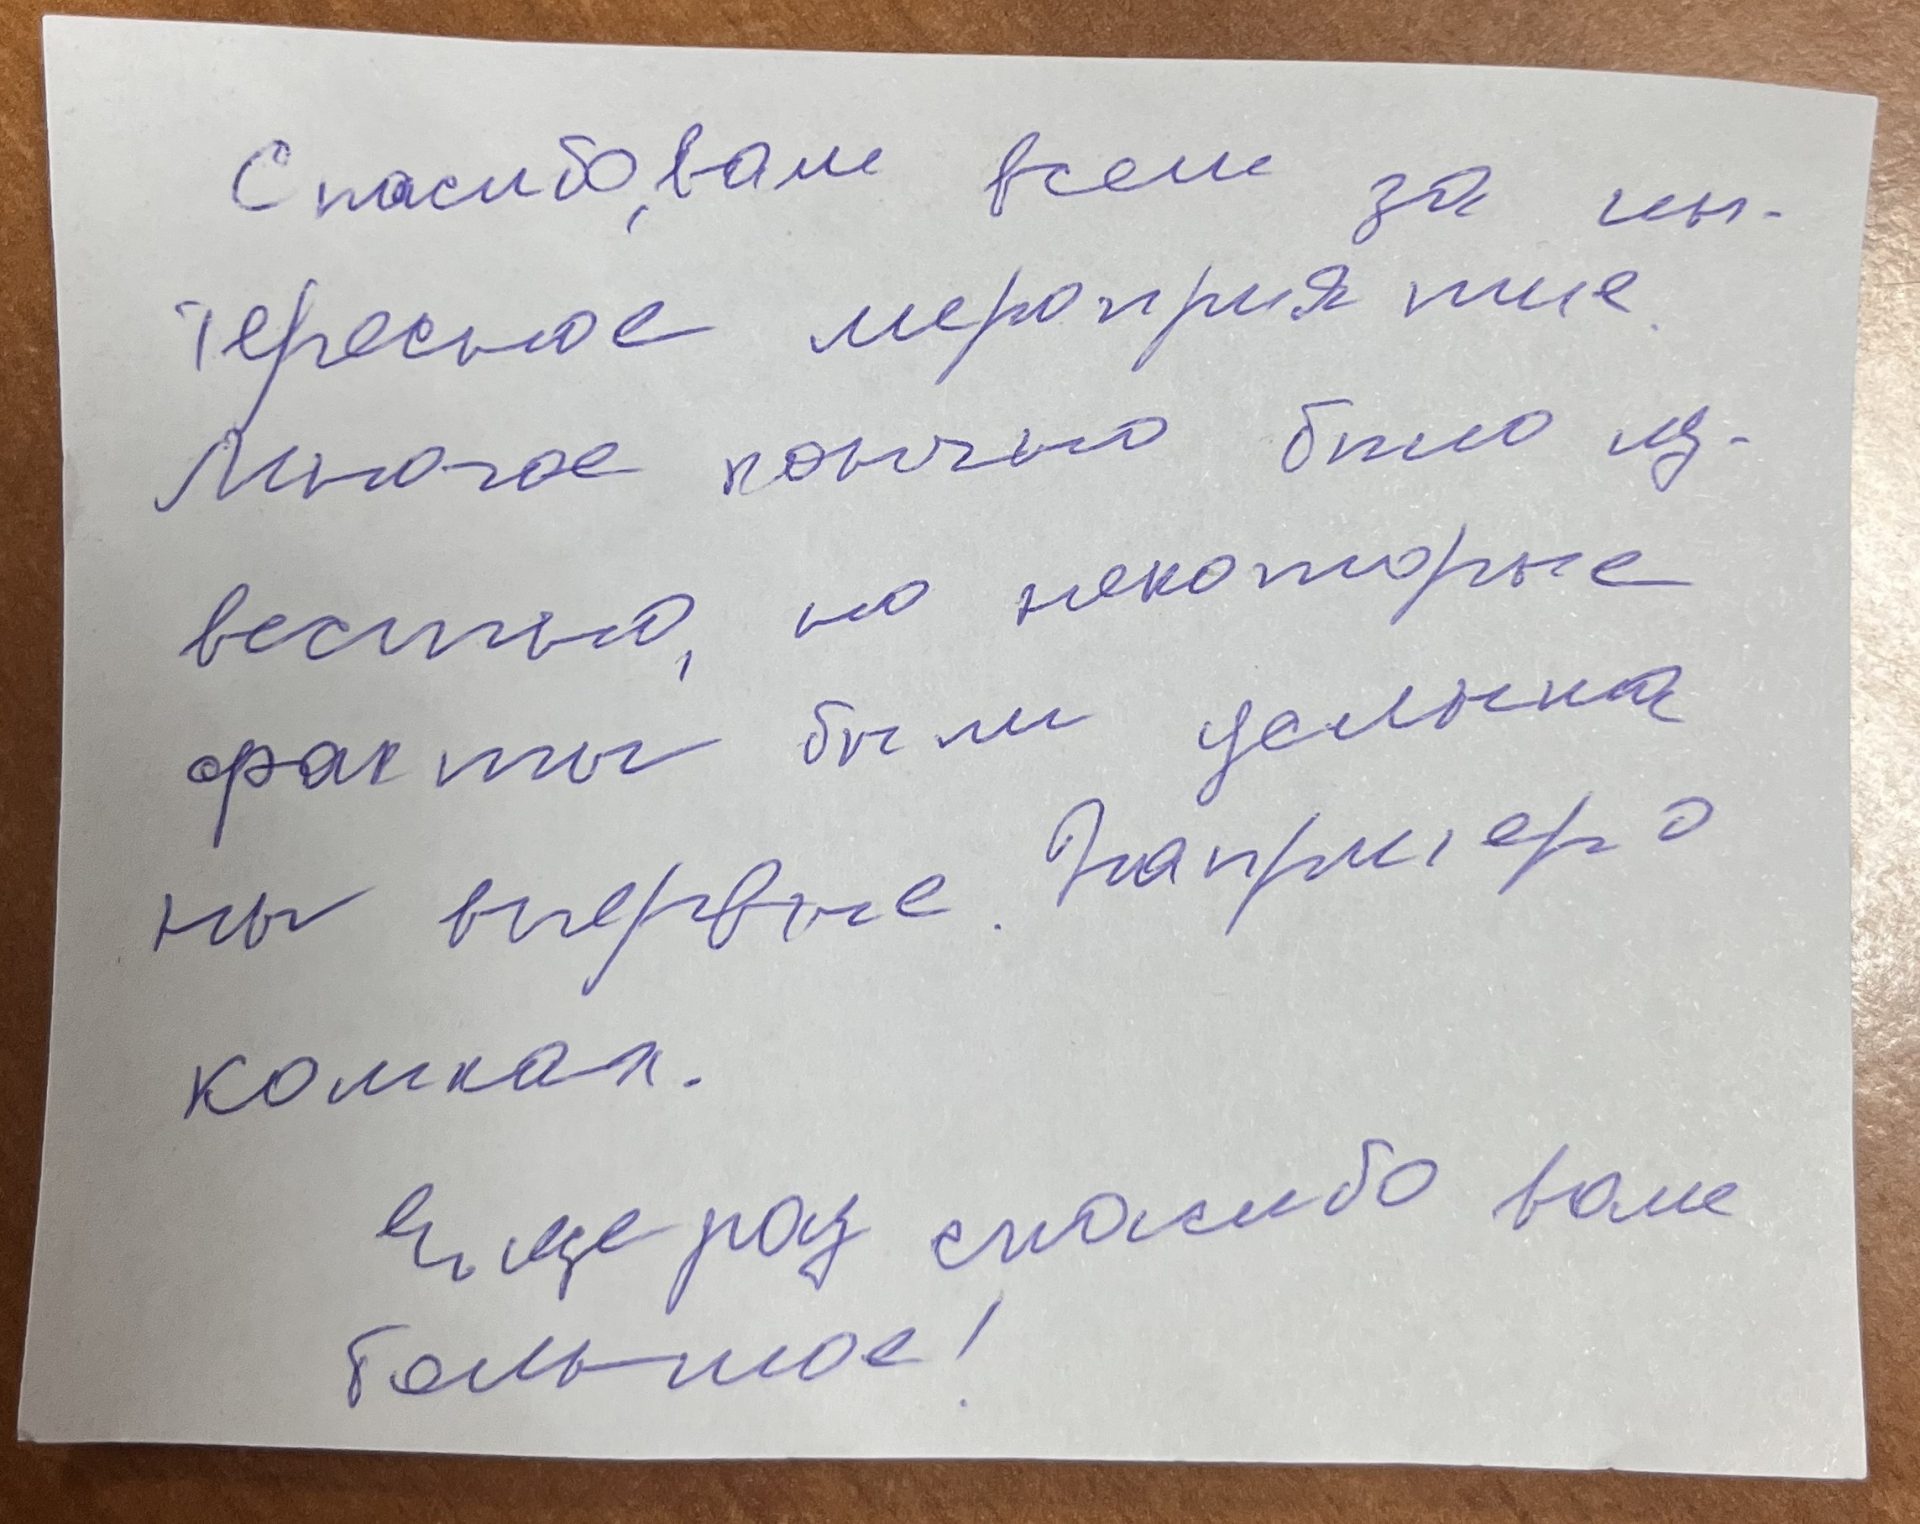 Спасибо, вам всем за ин-
тересное мероприятие.
Многое конечно было из-
вестно, но некоторые
факты были услыша
ны впервые. Например о
комках.
Еще раз спасибо вам
большое!